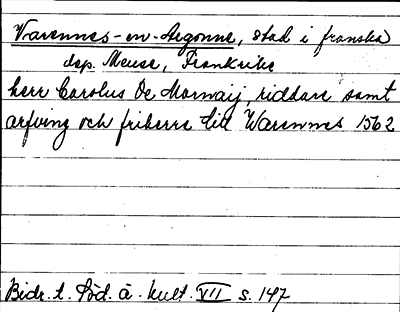 Varennes-en-Argonne, stad i franska
dep. Meuse, Frankrike
herr Carolus De Mornaij, riddare samt
arfving och friherre till Warennes 1562
Bidr. t. Söd. å. kult. VII s. 147